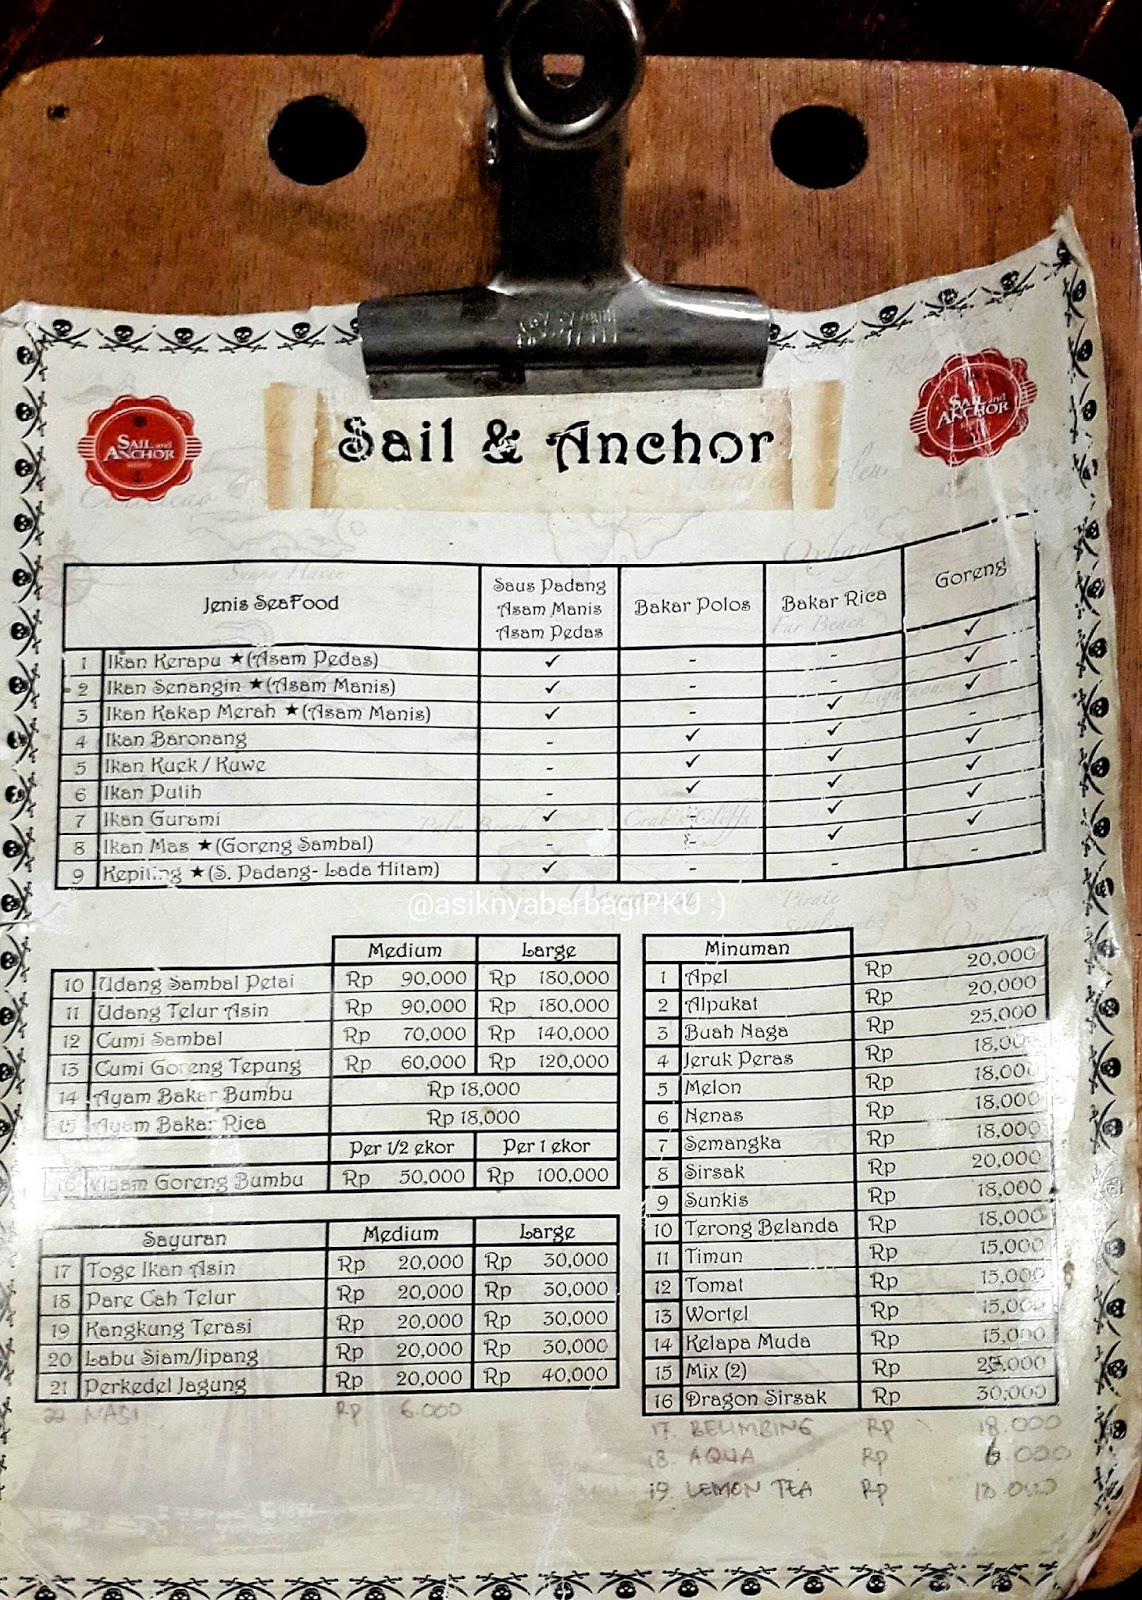 Sail and Anchor
Sail & Anchor
Sail and Anchor
Jenis SeaFood Saus Padang Asam Manis Asam Pedas Bakar Polos Bakar Rica Goreng
1 Ikan Kerapu ★(Asam Pedas) ✓ - - ✓
2 Ikan Senangin ★(Asam Manis) ✓ - - ✓
3 Ikan Kakap Merah ★(Asam Manis) ✓ - ✓ ✓
4 Ikan Baronang - ✓ ✓ -
5 Ikan Kuek / Kuwe - ✓ ✓ ✓
6 Ikan Putih - ✓ ✓ ✓
7 Ikan Gurami ✓ - ✓ ✓
8 Ikan Mas ★(Goreng Sambal) - - ✓ ✓
9 Kepiting ★(S. Padang- Lada Hitam) ✓ - - -
@asiknyaberbagiPKU :)
Medium Large
10 Udang Sambal Petai Rp 90,000 Rp 180,000
11 Udang Telur Asin Rp 90,000 Rp 180,000
12 Cumi Sambal Rp 70,000 Rp 140,000
13 Cumi Goreng Tepung Rp 60,000 Rp 120,000
14 Ayam Bakar Bumbu Rp 18,000
15 Ayam Bakar Rica Rp 18,000
Per 1/2 ekor Per 1 ekor
16 Ayam Goreng Bumbu Rp 50,000 Rp 100,000
Sayuran Medium Large
17 Toge Ikan Asin Rp 20,000 Rp 30,000
18 Pare Cah Telur Rp 20,000 Rp 30,000
19 Kangkung Terasi Rp 20,000 Rp 30,000
20 Labu Siam/Jipang Rp 20,000 Rp 30,000
21 Perkedel Jagung Rp 20,000 Rp 40,000
22 NASI Rp 6.000
Minuman
1 Apel Rp 20,000
2 Alpukat Rp 20,000
3 Buah Naga Rp 25,000
4 Jeruk Peras Rp 18,000
5 Melon Rp 18,000
6 Nenas Rp 18,000
7 Semangka Rp 18,000
8 Sirsak Rp 20,000
9 Sunkis Rp 18,000
10 Terong Belanda Rp 18,000
11 Timun Rp 15,000
12 Tomat Rp 15,000
13 Wortel Rp 15,000
14 Kelapa Muda Rp 15,000
15 Mix (2) Rp 25,000
16 Dragon Sirsak Rp 30,000
17 BELIMBING Rp 18.000
18 AQUA Rp 6 000
19 LEMON TEA Rp 18.000